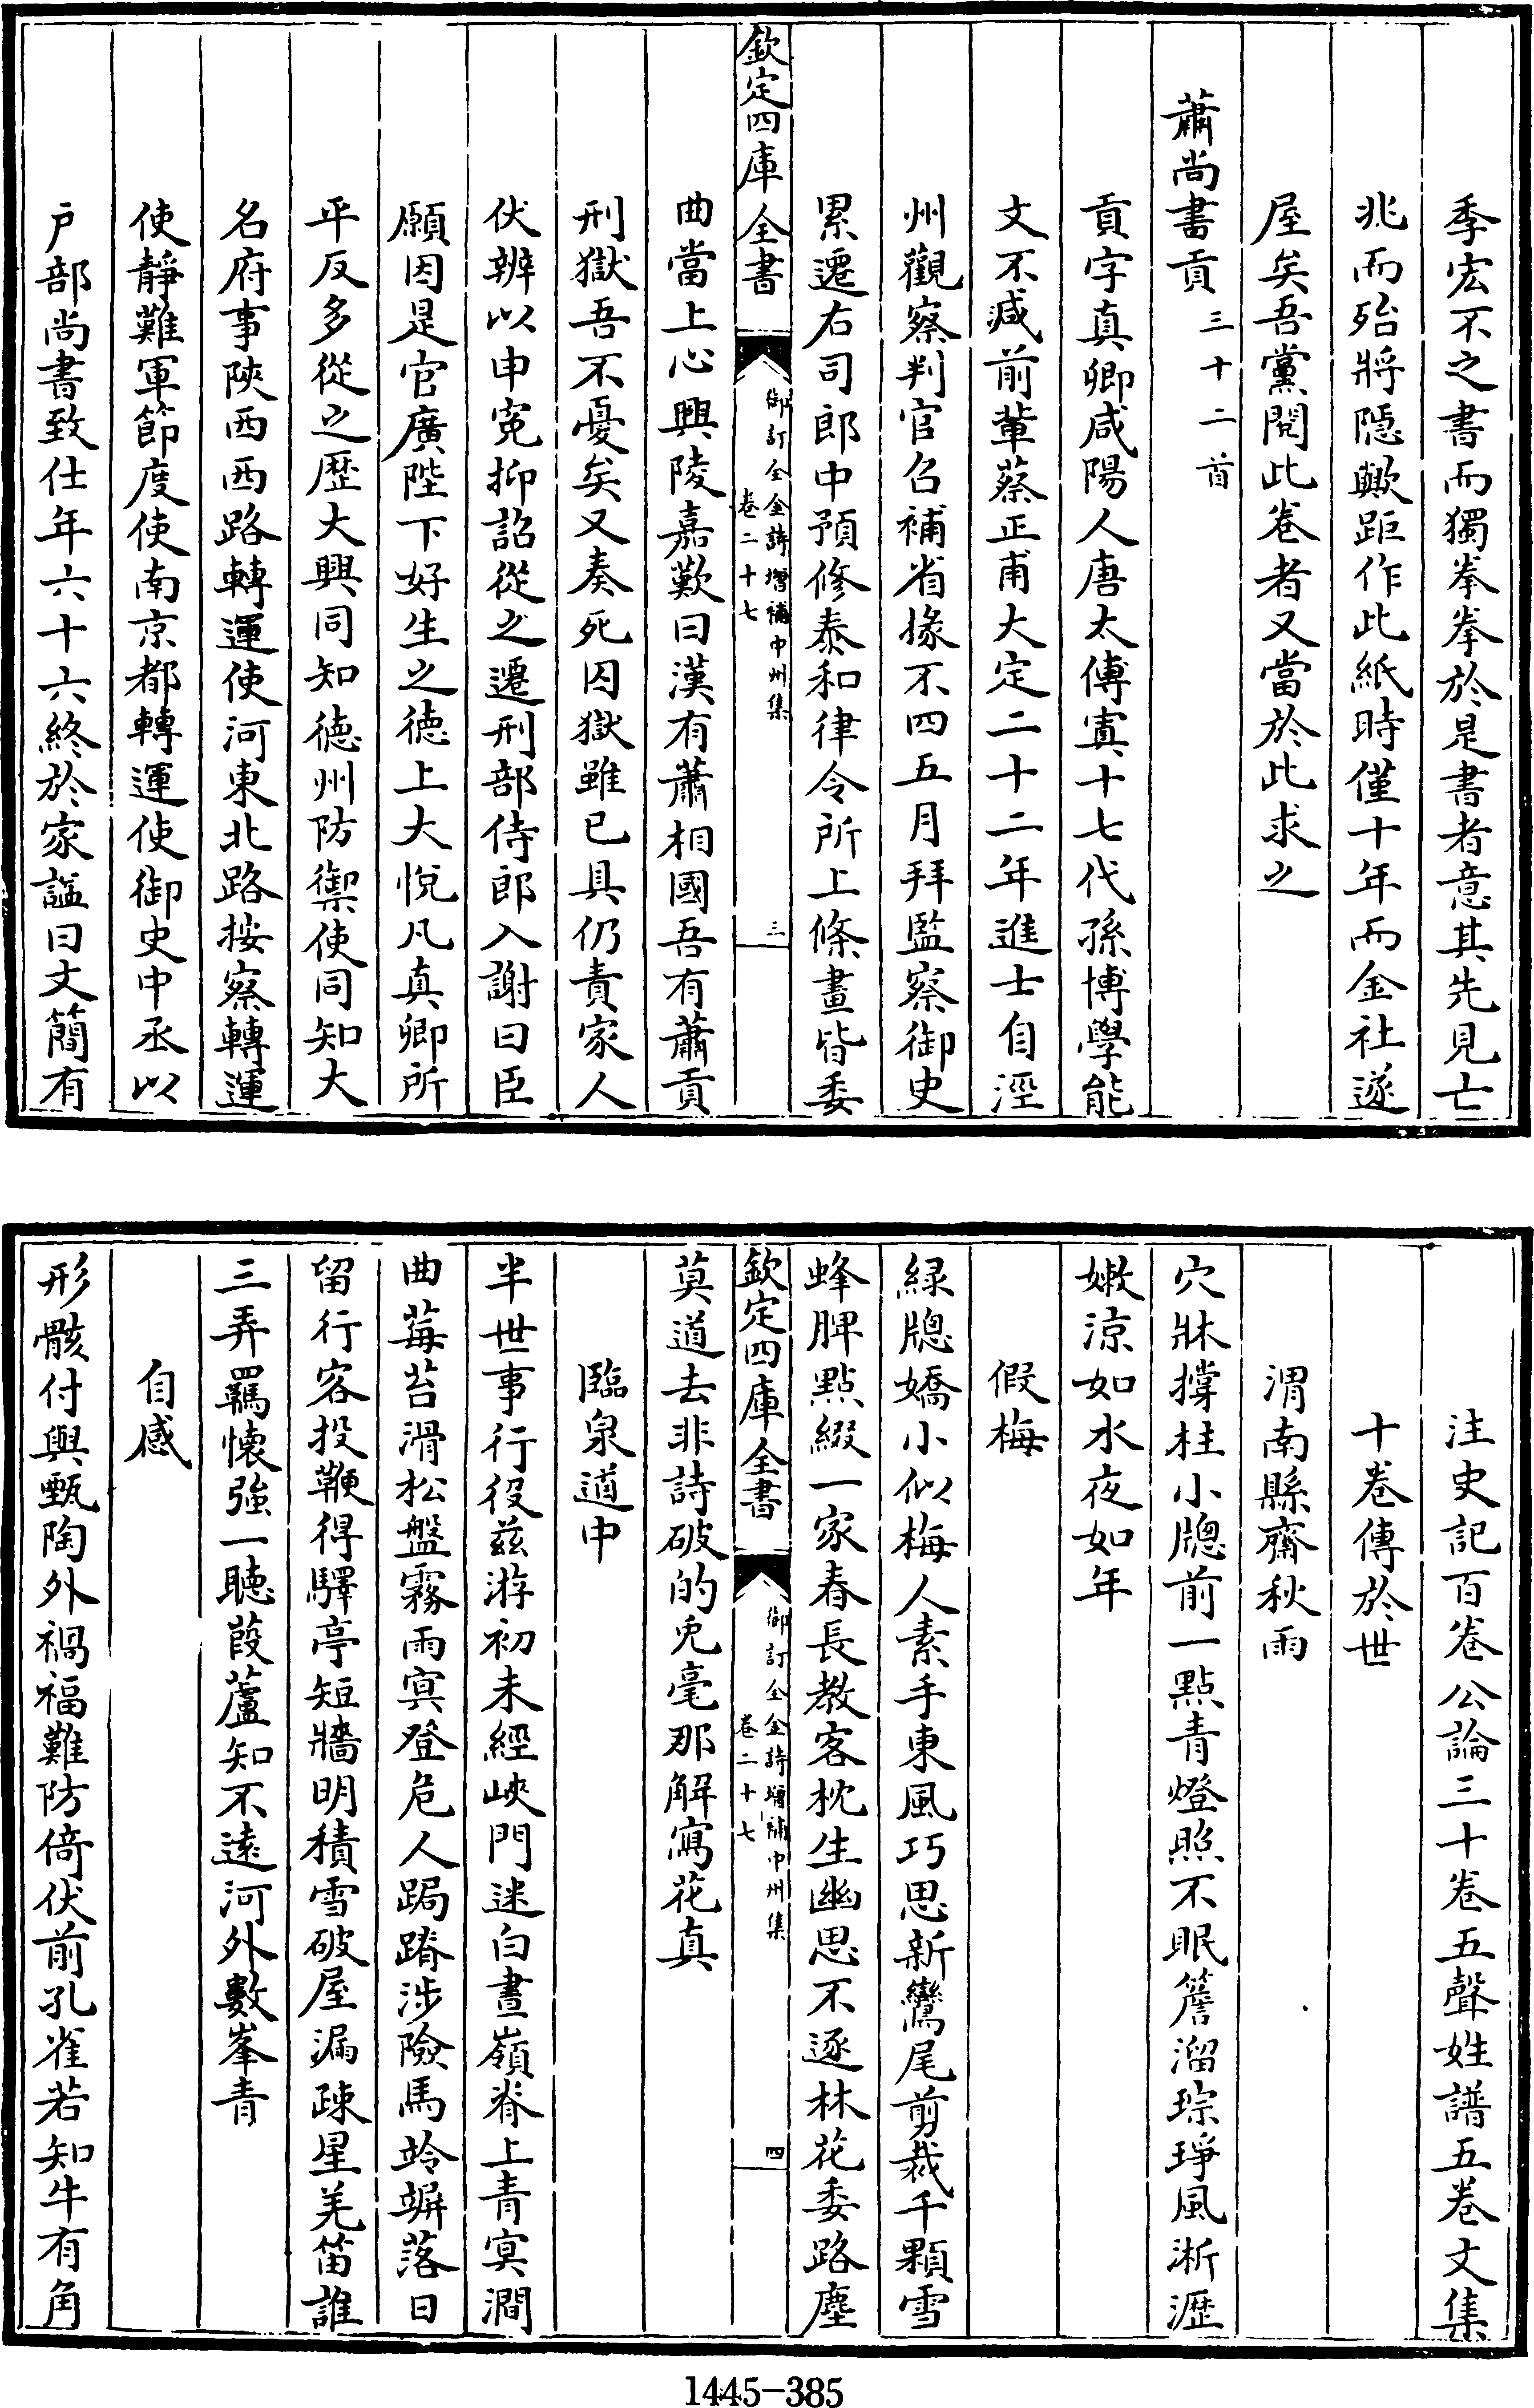 季宏不之書而獨拳拳於是書者意其先見亡
兆而殆將隠歟距作此紙時僅十年而金社遂
屋矣吾黨閲此卷者又當於此求之
蕭尚書貢三十二首
貢字真卿咸陽人唐太傅寘十七代孫博學能
文不减前輩蔡正甫大定二十二年進士自涇
州觀察判官召補省掾不四五月拜監察御史
累遷右司郎中預修泰和律令所上條畫皆委
欽定四庫全書
御訂全金詩增補中州集
卷二十七
三
曲當上心興陵嘉歎曰漢有蕭相國吾有蕭貢
刑獄吾不憂矣又奏死囚獄雖已具仍責家人
伏辨以申寃抑詔從之遷刑部侍郎入謝曰臣
願因是官廣陛下好生之徳上大悅凡真卿所
平反多從之歴大興同知徳州防禦使同知大
名府事陜西西路轉運使河東北路按察轉運
使靜難軍節度使南京都轉運使御史中丞以
户部尚書致仕年六十六終於家諡曰文簡有
注史記百卷公論三十卷五聲姓譜五卷文集
十卷傳於世
渭南縣齋秋雨
穴牀撐柱小牕前一點青燈照不眠簷溜琮琤風淅瀝
嫩涼如水夜如年
假梅
緑牕嬌小似梅人素手東風巧思新鸞尾剪裁千顆雪
蜂脾點綴一家春長教客枕生幽思不逐林花委路塵
欽定四庫全書
御訂全金詩增補中州集
卷二十七
四
莫道去非詩破的兎毫那解寫花真
臨泉道中
半世事行役兹游初未經峽門迷白晝嶺脊上青冥澗
曲莓苔滑松盤霧雨冥登危人跼蹐涉險馬竛竮落日
留行客投鞭得驛亭短牆明積雪破屋漏疎星羌笛誰
三弄羈懐強一聽葭蘆知不遠河外數峯青
自感
形骸付與甄陶外禍福難防倚伏前孔雀若知牛有角
1445-385